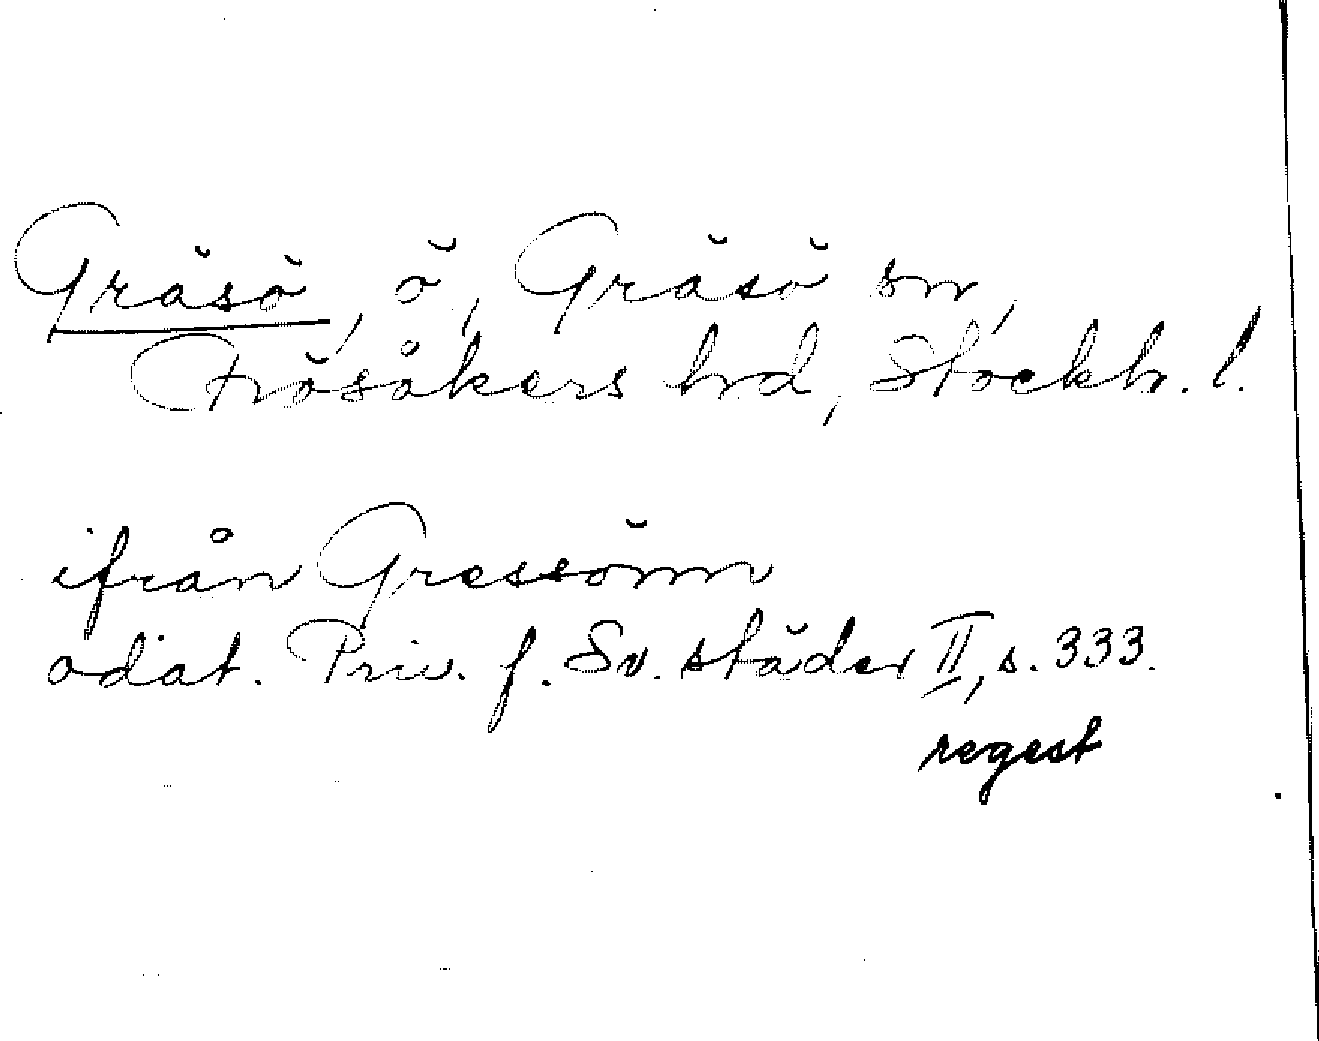 Gräsö, ö, Gräsö sn,
Frösåkers hd, Stockh. l.
ifrån Gressönn
odat. Priv. f. Sv. städer II, s. 333.
regest